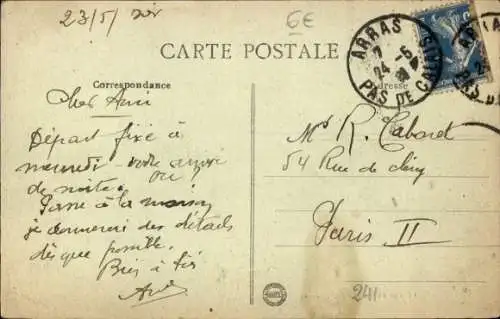 23/5/ soir
6€
CARTE POSTALE
ARRAS
PAS DE CALAIS
Correspondance
Adresse
Cher Ami
Départ fixé à
mercredi
OU!
de
Passe à la maison
je donnerai des détails
dès que possible.
Bien à toi
Mr R. Cabaret
54 Rue de Cléry
Paris II
241